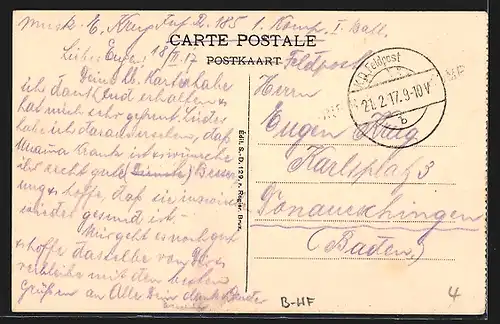 Musk. E. Krug Inf. R. 185 1. Komp. I. Batl.
CARTE POSTALE
POSTKAART
Feldpost
Lieber Eugen! 18/II. 17
Deine lb. Karte habe
ich dankend erhalten &
hab mich sehr gefreut. Leider
habe ich daraus ersehen, daß
Mama krank ist & wünsche
ihr recht gute Besse-
rung & hoffe, daß sie inzwischen
wieder gesund ist.
Mir geht es noch gut
& hoffe dasselbe von Dir &
verbleibe mit den besten
Grüßen an Alle Dein Bruder
K.D. Feldpost
21.2.17. 9-10V
b
Herrn
Eugen Krug
Karlsplatz 3
Donaueschingen
(Baden)
Édit. S.-D. 129, r. Rogier, Brux.
B-HF
4